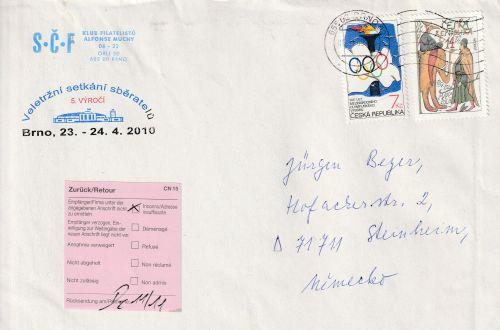 S·Č·F
KLUB FILATELISTŮ
ALFONSE MUCHY
06 - 22
ORLÍ 30
602 00 BRNO
Veletržní setkání sběratelů
5. VÝROČÍ
Brno, 23. - 24. 4. 2010
7 Kč
ČESKÁ REPUBLIKA
ČESKÁ
REPUBLIKA
Zurück/Retour
CN 15
Empfänger/Firma unter der
angegebenen Anschrift nicht
zu ermitteln
Inconnu/Adresse
insuffisante
Empfänger verzogen. Ein-
willigung zur Weitergabe der
neuen Anschrift liegt nicht vor.
Déménagé
Annahme verweigert
Refusé
Nicht abgeholt
Non réclamé
Nicht zulässig
Non admis
Rücksendung am/Retour
Jürgen Beyer,
Hofackerstr. 2,
D 71711 Steinheim,
Německo